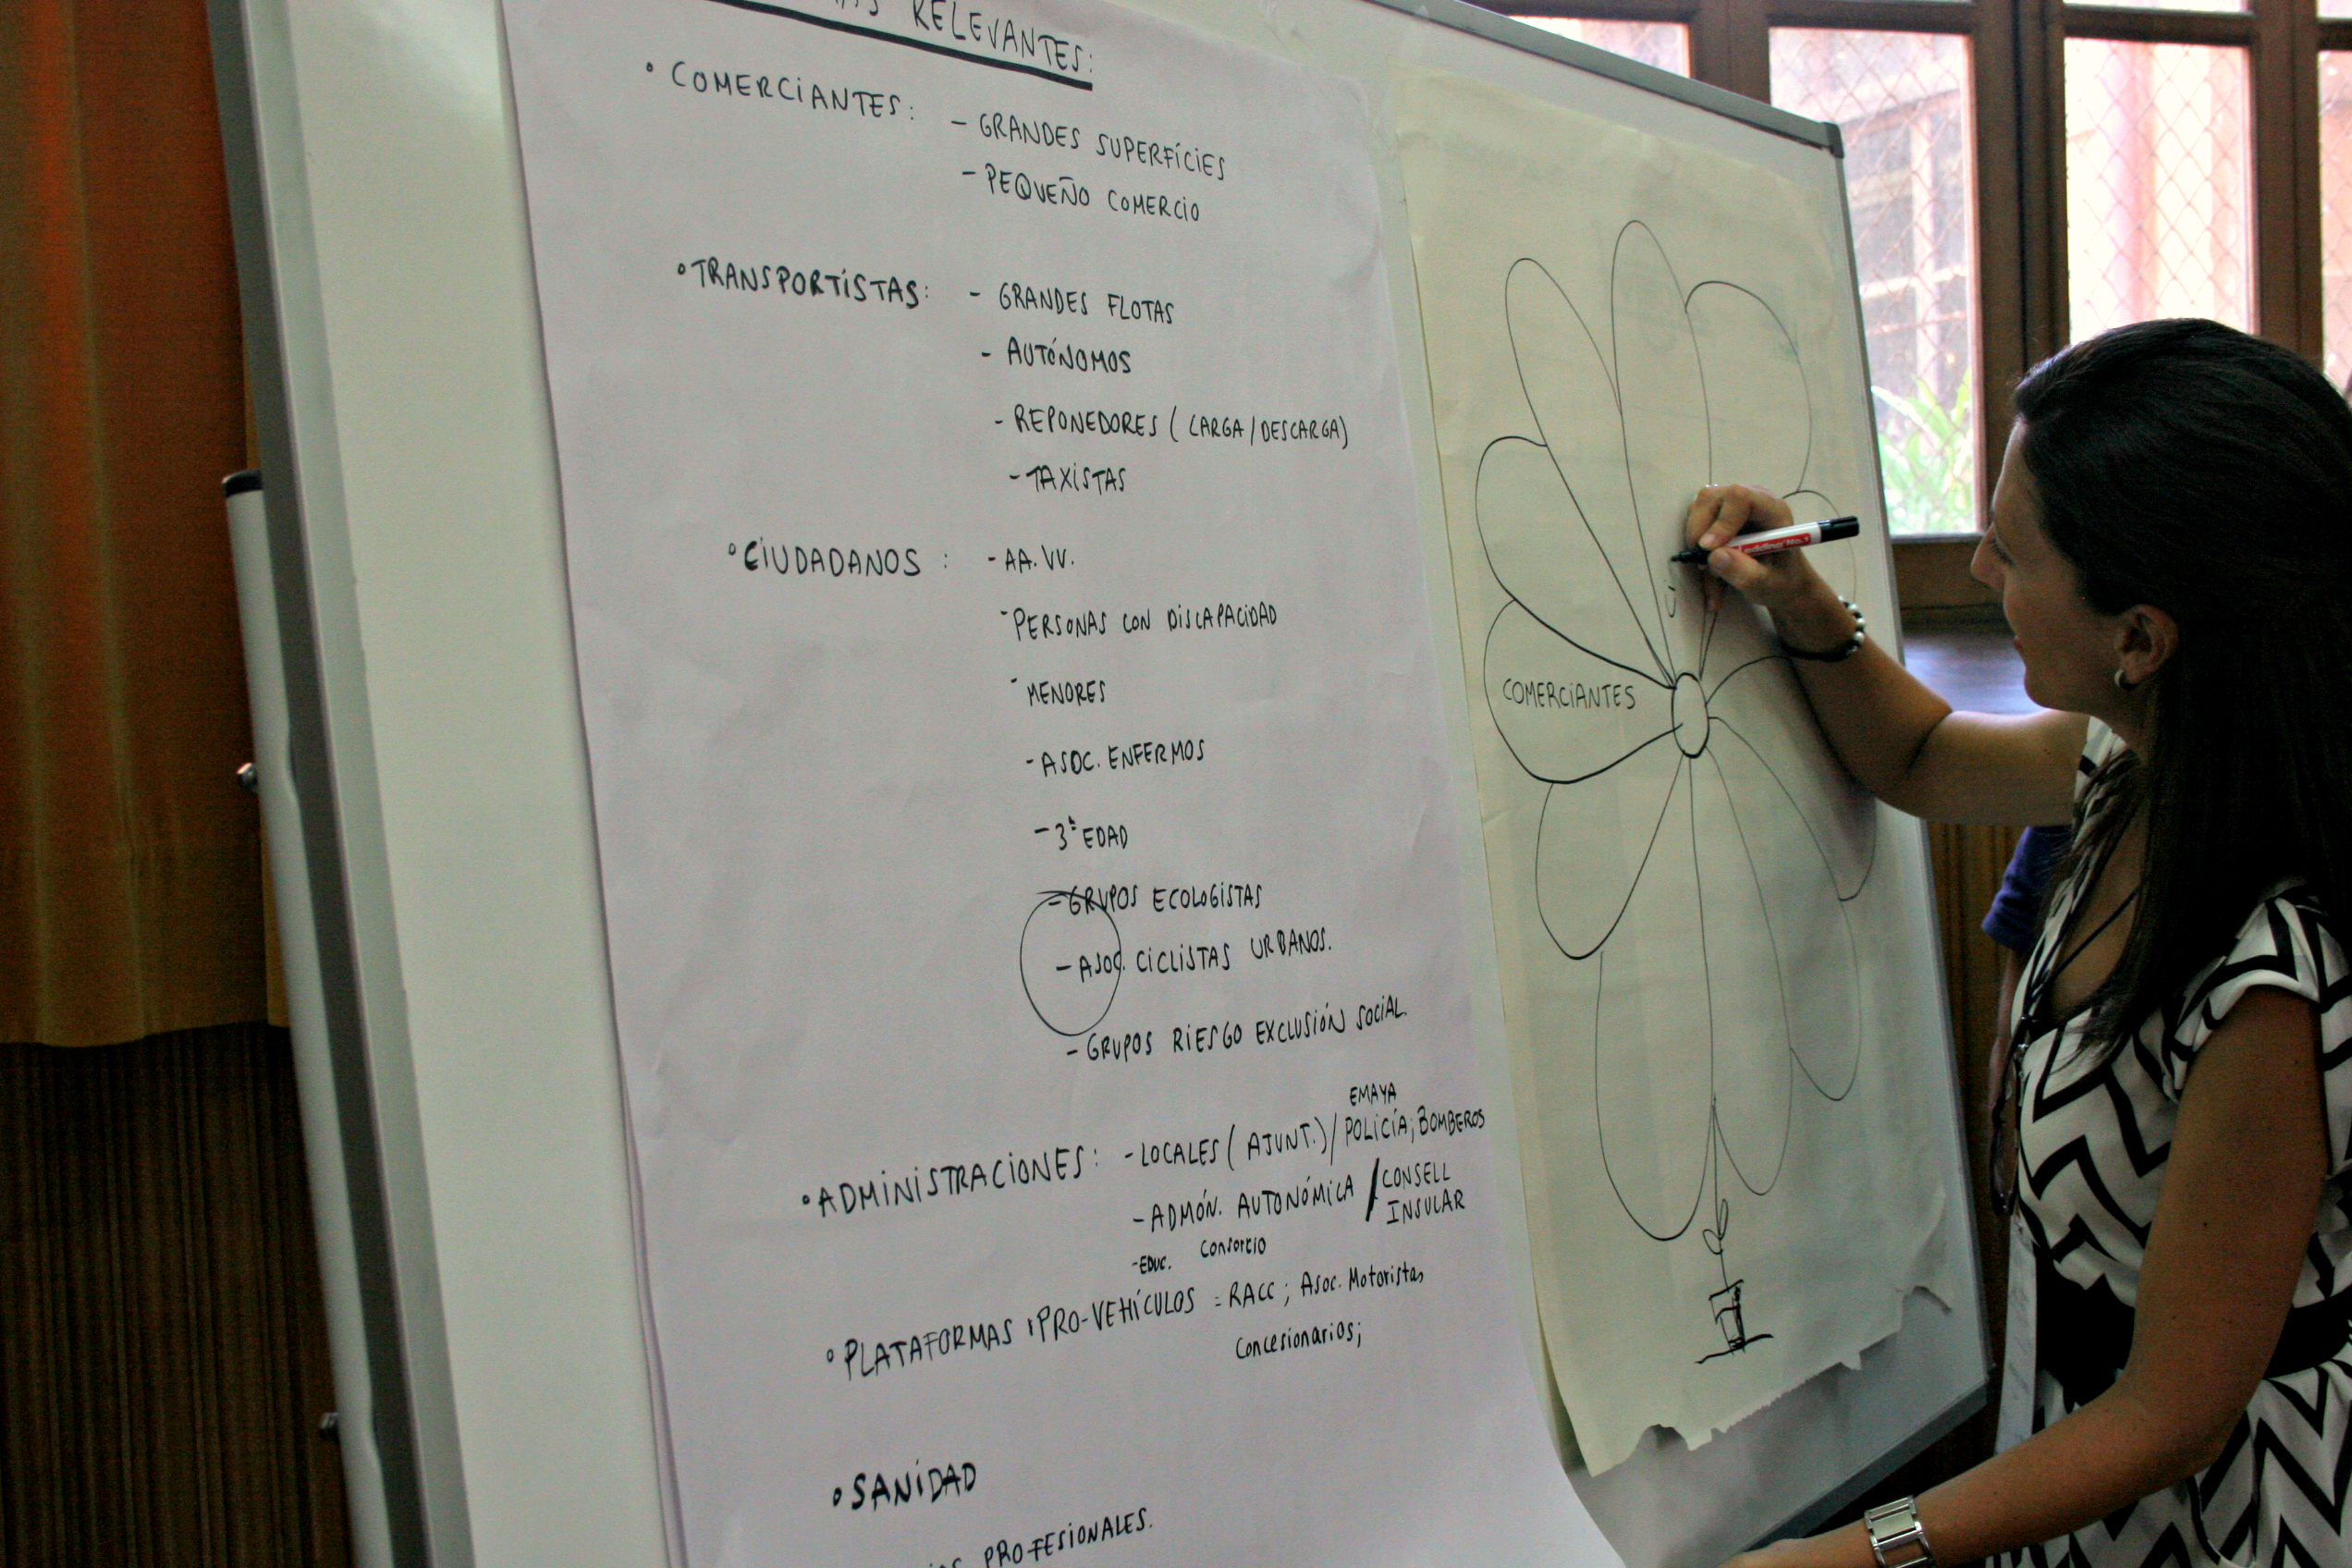 RELEVANTES:
• COMERCIANTES: - GRANDES SUPERFÍCIES
- PEQUEÑO COMERCIO
• TRANSPORTISTAS: - GRANDES FLOTAS
- AUTÓNOMOS
- REPONEDORES (CARGA/DESCARGA)
- TAXISTAS
• CIUDADANOS: - AA.VV.
- PERSONAS CON DISCAPACIDAD
- MENORES
- ASOC. ENFERMOS
- 3ª EDAD
- GRUPOS ECOLOGISTAS
- ASOC. CICLISTAS URBANOS.
- GRUPOS RIESGO EXCLUSIÓN SOCIAL.
EMAYA
• ADMINISTRACIONES: - LOCALES (AJUNT.) / POLICÍA; BOMBEROS
- ADMÓN. AUTONÓMICA / CONSELL
INSULAR
- EDUC. Consorcio
• PLATAFORMAS PRO-VEHÍCULOS = RACC; Asoc. Motoristas
Concesionarios;
• SANIDAD
PROFESIONALES.
COMERCIANTES
edding No.1